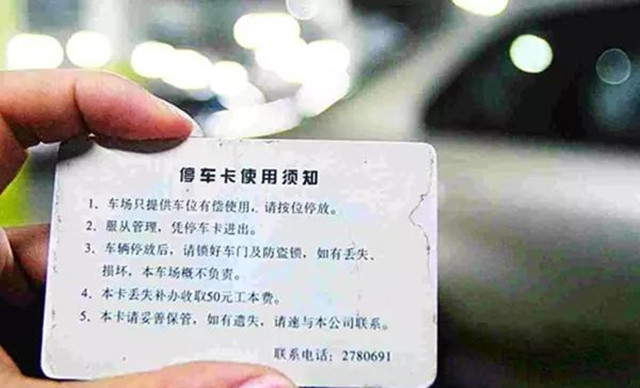 停车卡使用须知
1、车场只提供车位有偿使用，请按位停放。
2、服从管理，凭停车卡进出。
3、车辆停放后，请锁好车门及防盗锁，如有丢失、
损坏，本车场概不负责。
4、本卡丢失补办收取50元工本费。
5、本卡请妥善保管，如有遗失，请速与本公司联系。
联系电话：2780691